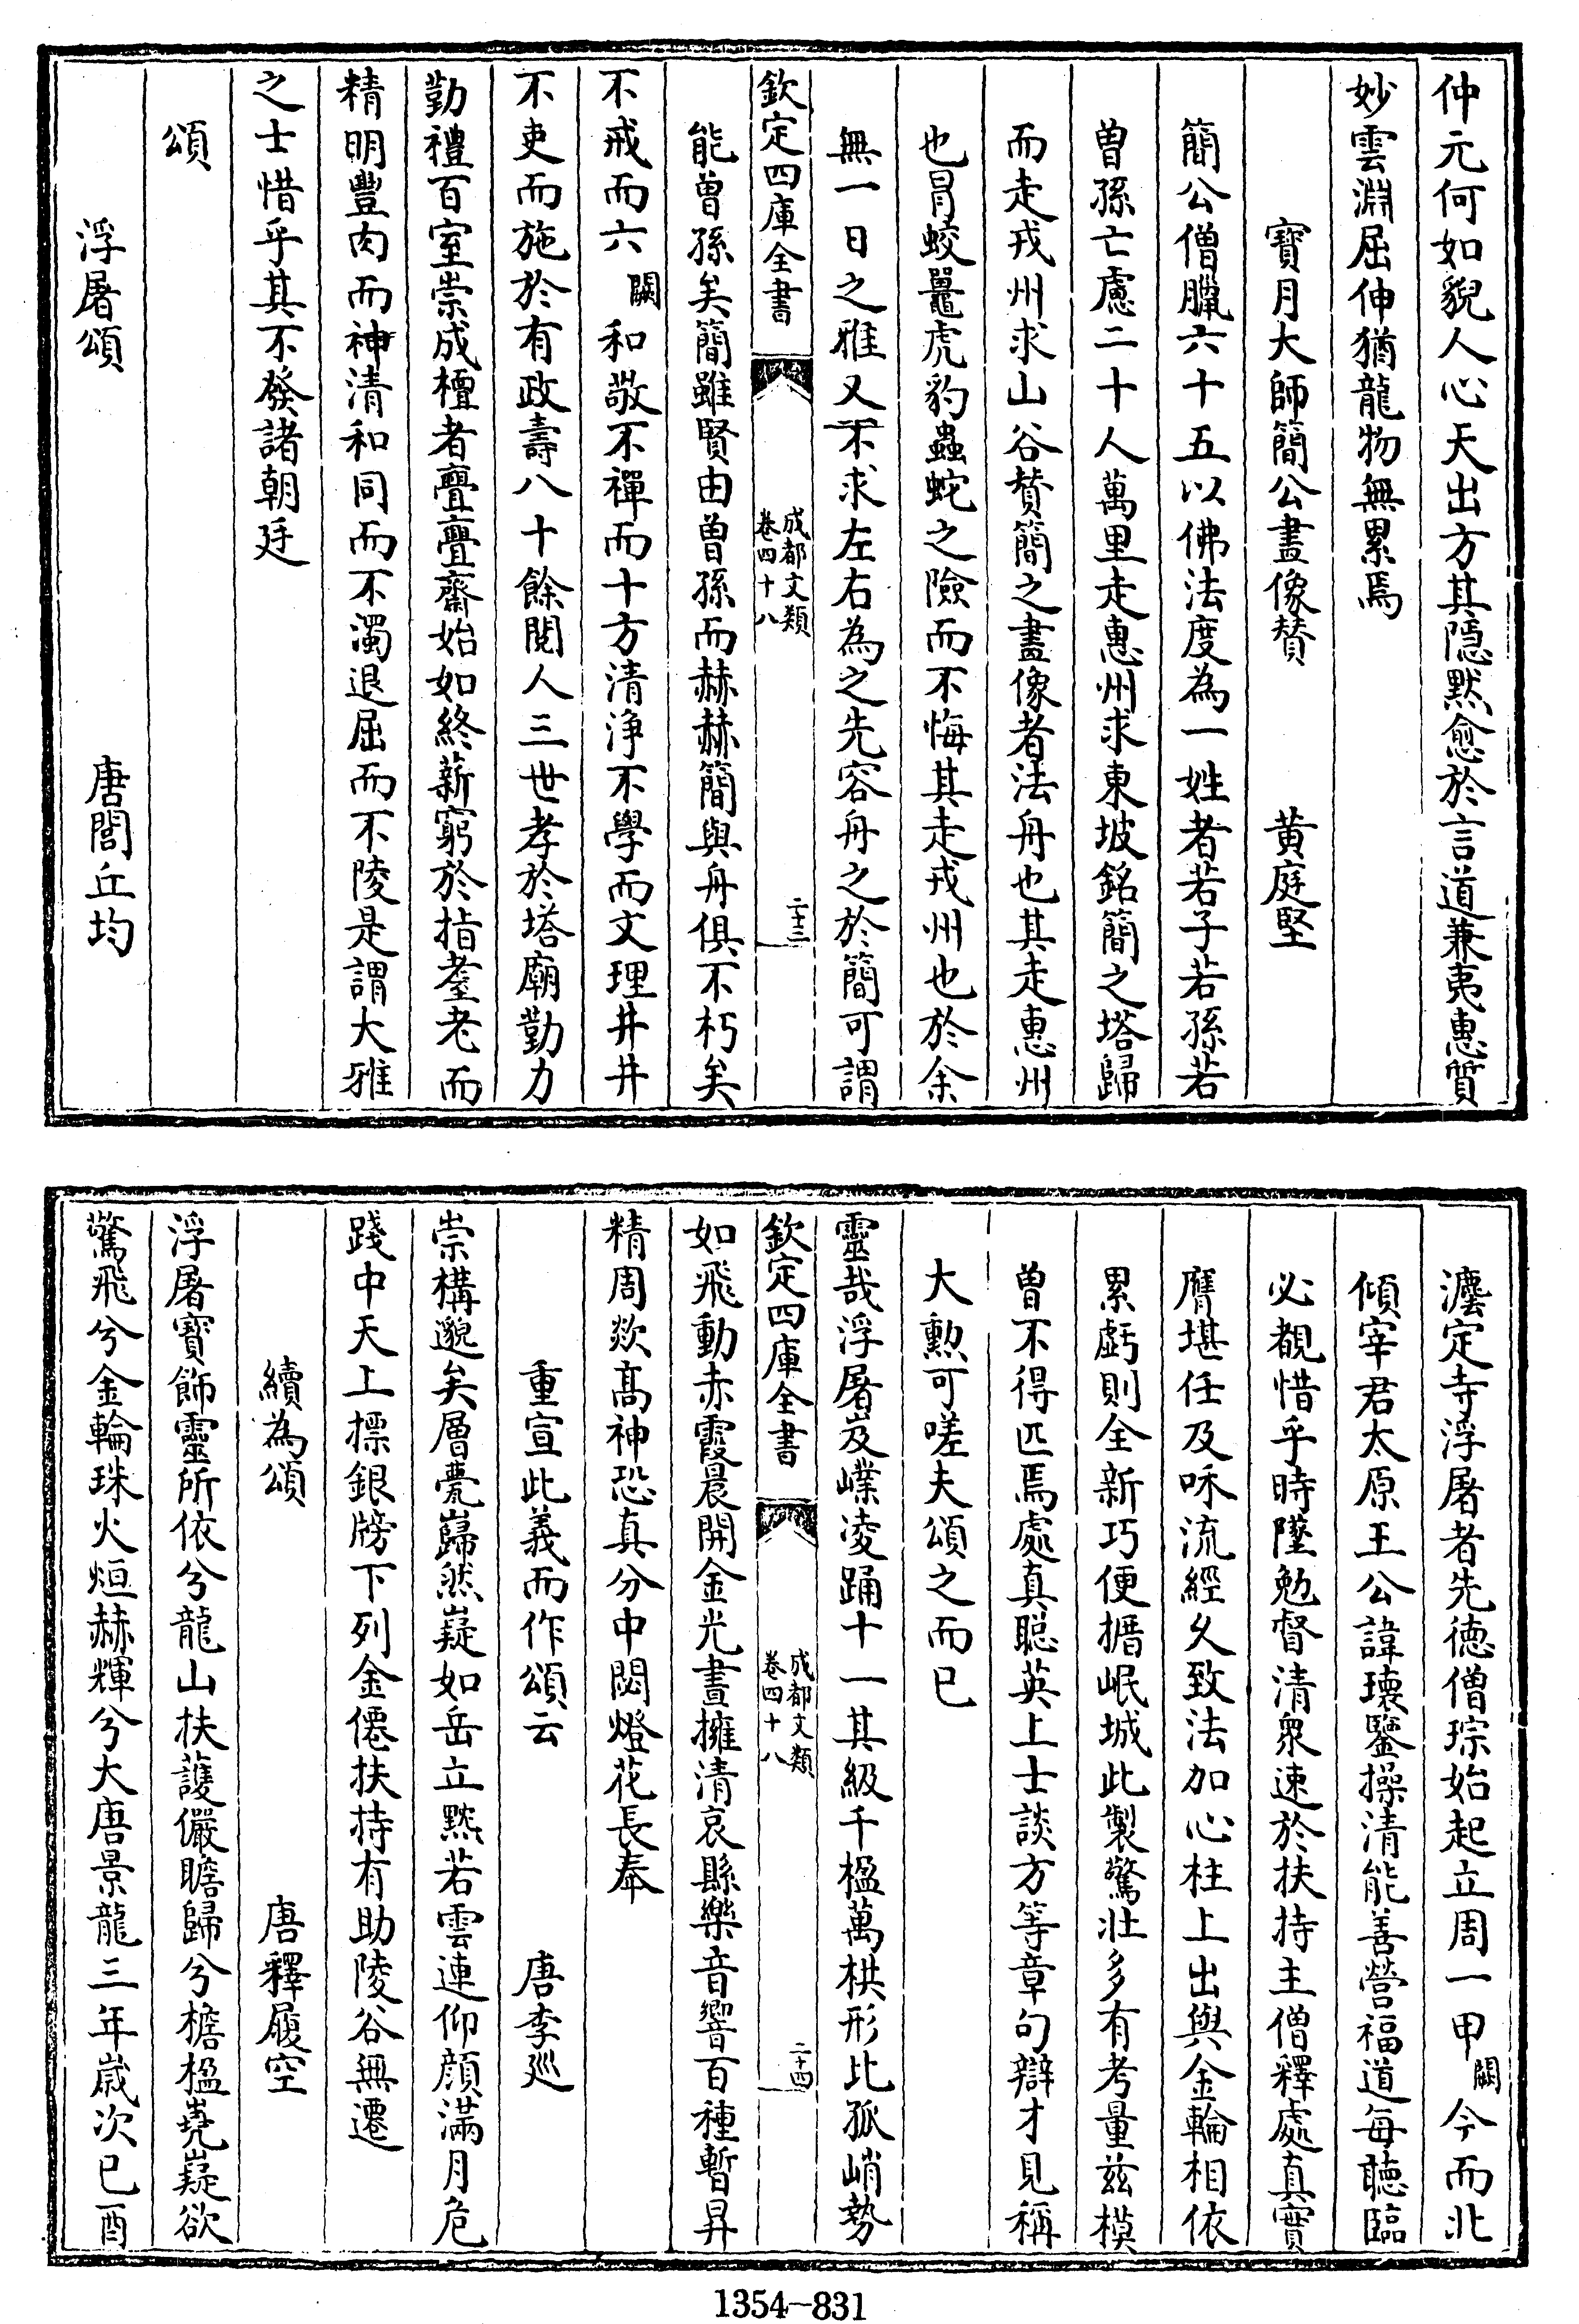 仲元何如貌人心天出方其隱默愈於言道兼夷惠質
妙雲淵屈伸猶龍物無累焉
寶月大師簡公畫像贊 黃庭堅
簡公僧臘六十五以佛法度為一姓者若子若孫若
曾孫亡慮二十人萬里走惠州求東坡銘簡之塔歸
而走戎州求山谷贊簡之畫像者法舟也其走惠州
也冒蛟鼉虎豹蟲蛇之險而不悔其走戎州也於余
無一日之雅又不求左右為之先容舟之於簡可謂
欽定四庫全書 成都文類 卷四十八 二十三
能曾孫矣簡雖賢由曾孫而赫赫簡與舟俱不朽矣
不戒而六闕和敬不禪而十方清淨不學而文理井井
不吏而施於有政壽八十餘閱人三世孝於塔廟勤力
勤禮百室崇成檀者亹亹齋始如終薪窮於指耋老而
精明豐肉而神清和同而不濁退屈而不陵是謂大雅
之士惜乎其不發諸朝廷
頌
浮屠頌 唐閭丘均
瀍定寺浮屠者先德僧琮始起立周一甲闕今而北
傾宰君太原王公諱瓌鑒操清能善營福道每聽臨
必覩惜乎時墜勉督清衆速於扶持主僧釋處真實
膺堪任及咊流經久致法加心柱上出與金輪相依
累虧則全新巧便搢岷城此製驚壯多有考量茲模
曾不得匹焉處真聰英上士談方等章句辯才見稱
大勲可嗟夫頌之而已
靈哉浮屠岌嶪凌踊十一其級千楹萬栱形比孤峭勢
欽定四庫全書 成都文類 卷四十八 二十四
如飛動赤霞晨開金光晝擁清哀縣樂音響百種暫昇
精周欻高神恐真分中閟燈花長奉
重宣此義而作頌云 唐李廵
崇構邈矣層甍巋然嶷如岳立黙若雲連仰顔滿月危
踐中天上摽銀牓下列金僊扶持有助陵谷無遷
續為頌 唐釋履空
浮屠寶飾靈所依兮龍山扶䕶儼瞻歸兮檐楹嶤嶷欲
驚飛兮金輪珠火烜赫輝兮大唐景龍三年歲次已酉
1354—831